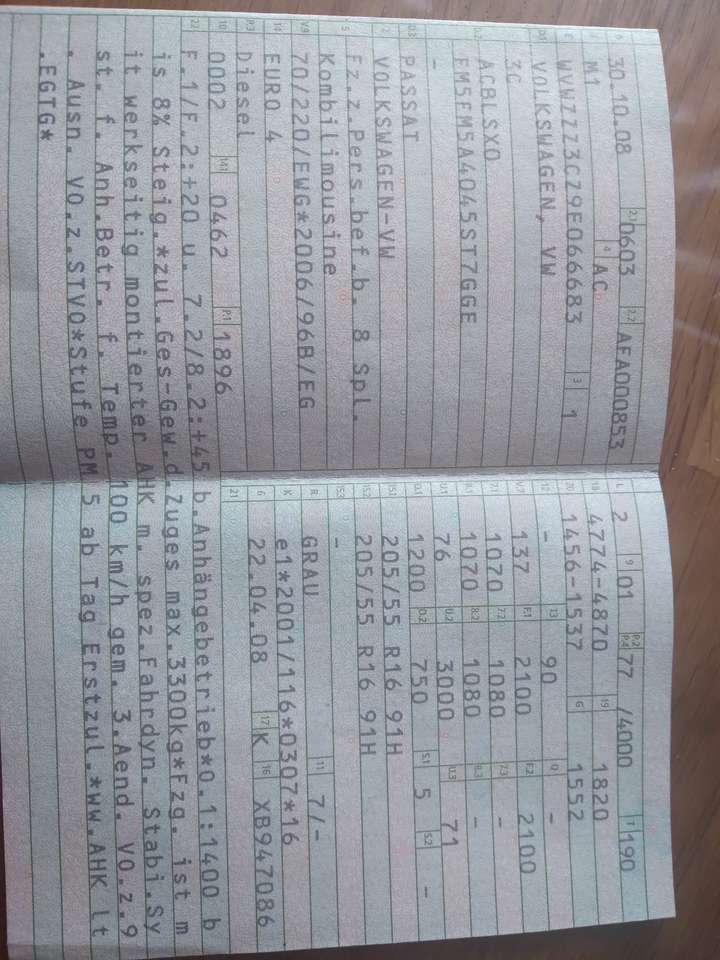 B 30.10.08 2.1 0603 2.2 AEA000853
J M1 4 AC
E WVWZZZ3CZ9E066683 3 1
D.1 VOLKSWAGEN, VW
3C
D.2 ACBLSX0
FM5FM5A4045ST7GGE
-
D.3 PASSAT
2 VOLKSWAGEN-VW
5 Fz.z.Pers.bef.b. 8 Spl.
Kombilimousine
V.9 70/220/EWG*2006/96B/EG
14 EURO 4
P.3 Diesel
10 0002 14.1 0462 P.1 1896
L 2 9 01 P.2 P.4 77 /4000 T 190
18 4774-4870 19 1820
20 1456-1537 G 1552
12 - 13 90 Q -
V.7 137 F.1 2100 F.2 2100
7.1 1070 7.2 1080 7.3 -
8.1 1070 8.2 1080 8.3 -
U.1 76 U.2 3000 U.3 71
O.1 1200 O.2 750 S.1 5 S.2 -
15.1 205/55 R16 91H
15.2 205/55 R16 91H
15.3 -
R GRAU 11 7/-
K e1*2001/116*0307*16
6 22.04.08 17 K 16 XB947086
21
22 F.1/F.2:+20 u. 7.2/8.2:+45 b.Anhängebetrieb*O.1:1400 b
is 8% Steig.*zul.Ges-Gew.d.Zuges max.3300kg*Fzg. ist m
it werkseitig montierter AHK m. spez.Fahrdyn. Stabi.Sy
st. f. Anh.Betr. f. Temp. 100 km/h gem. 3.Aend. VO.z.9
. Ausn. VO.z.STVO*Stufe PM 5 ab Tag Erstzul.*WW.AHK lt
.EGTG*